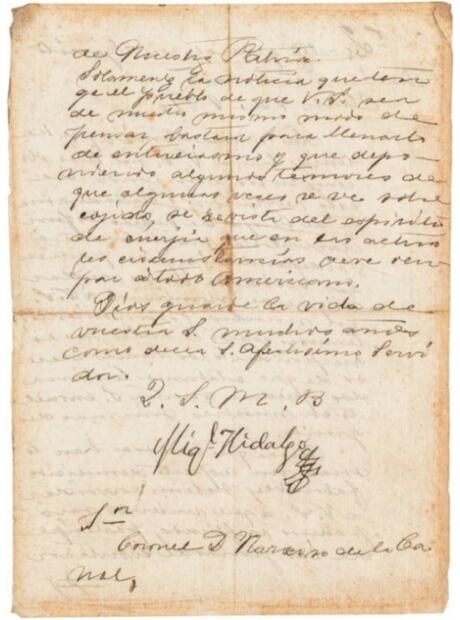 de Nuestra Patria.
Solamente la noticia que ten
ga el pueblo de que V. S. sea
de nuestro mismo modo de
pensar bastara para llenarlo
de entuciasmo y que depo-
niendo algunos temores de
que algunas veces se ve sobre
cojido, se revista del espiritu
de energia que en las actua
les circunstancias deve ocu
par á todo Americano.
Dios guarde la vida de
vuestra S. muchos años
como decea S. afectisimo servi
dor.
Q. S. M. B
Migl. Hidalgo
Sor
Coronel D Narciso de la Ca
nal,